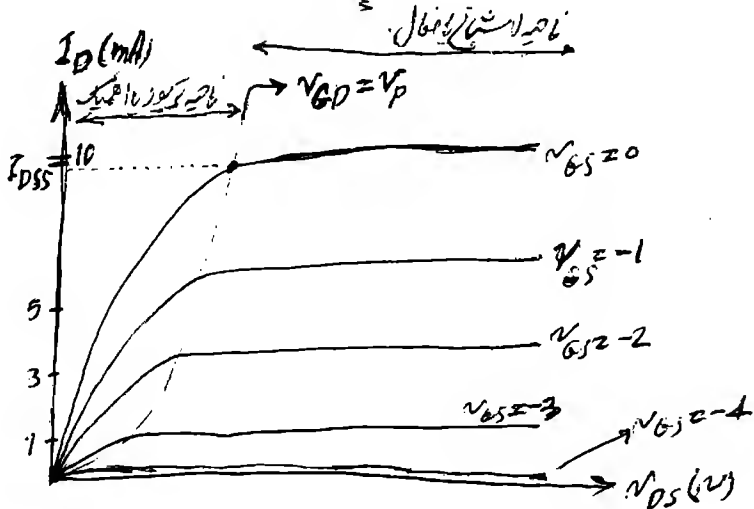 s
ناحیه اشباع یا فعال
I_D (mA)
ناحیه تریود یا اهمیک
v_GD = v_P
I_DSS = 10
v_GS = 0
v_GS = -1
5
v_GS = -2
3
v_GS = -3
v_GS = -4
1
v_DS (v)